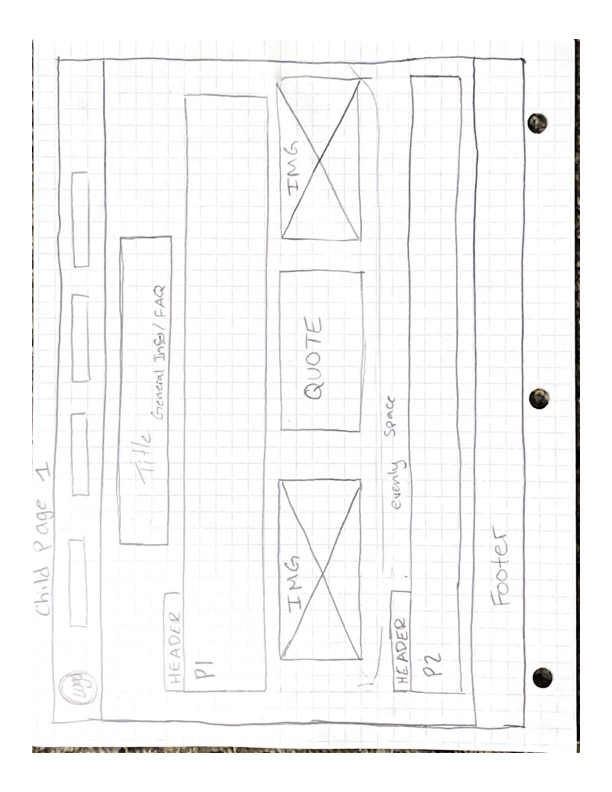 Child Page 1
Logo
Title General Info/FAQ
HEADER
P1
IMG
QUOTE
IMG
evenly space
HEADER
P2
Footer